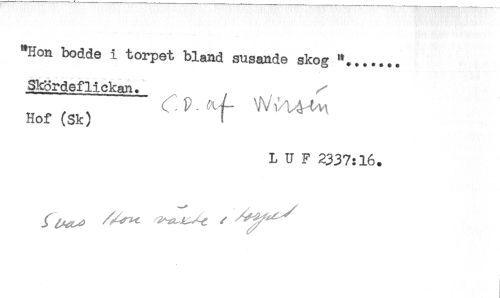 "Hon bodde i torpet bland susande skog ".......
Skördeflickan.
C.D. af Wirsén
Hof (Sk)
L U F 2337:16.
Svas Hon växte i torpet